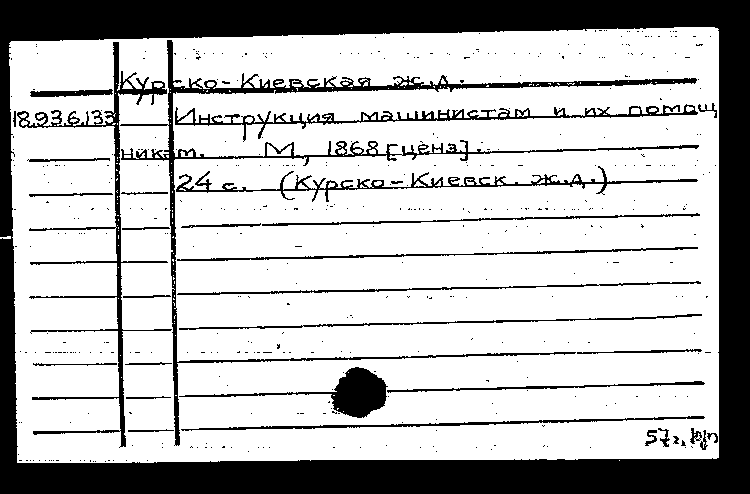 Курско-Киевская ж.д.
18.93.6.133 Инструкция машинистам и их помощ
никам. М., 1868 [ценз].
24 с. (Курско-Киевск. ж.д.)
57г.